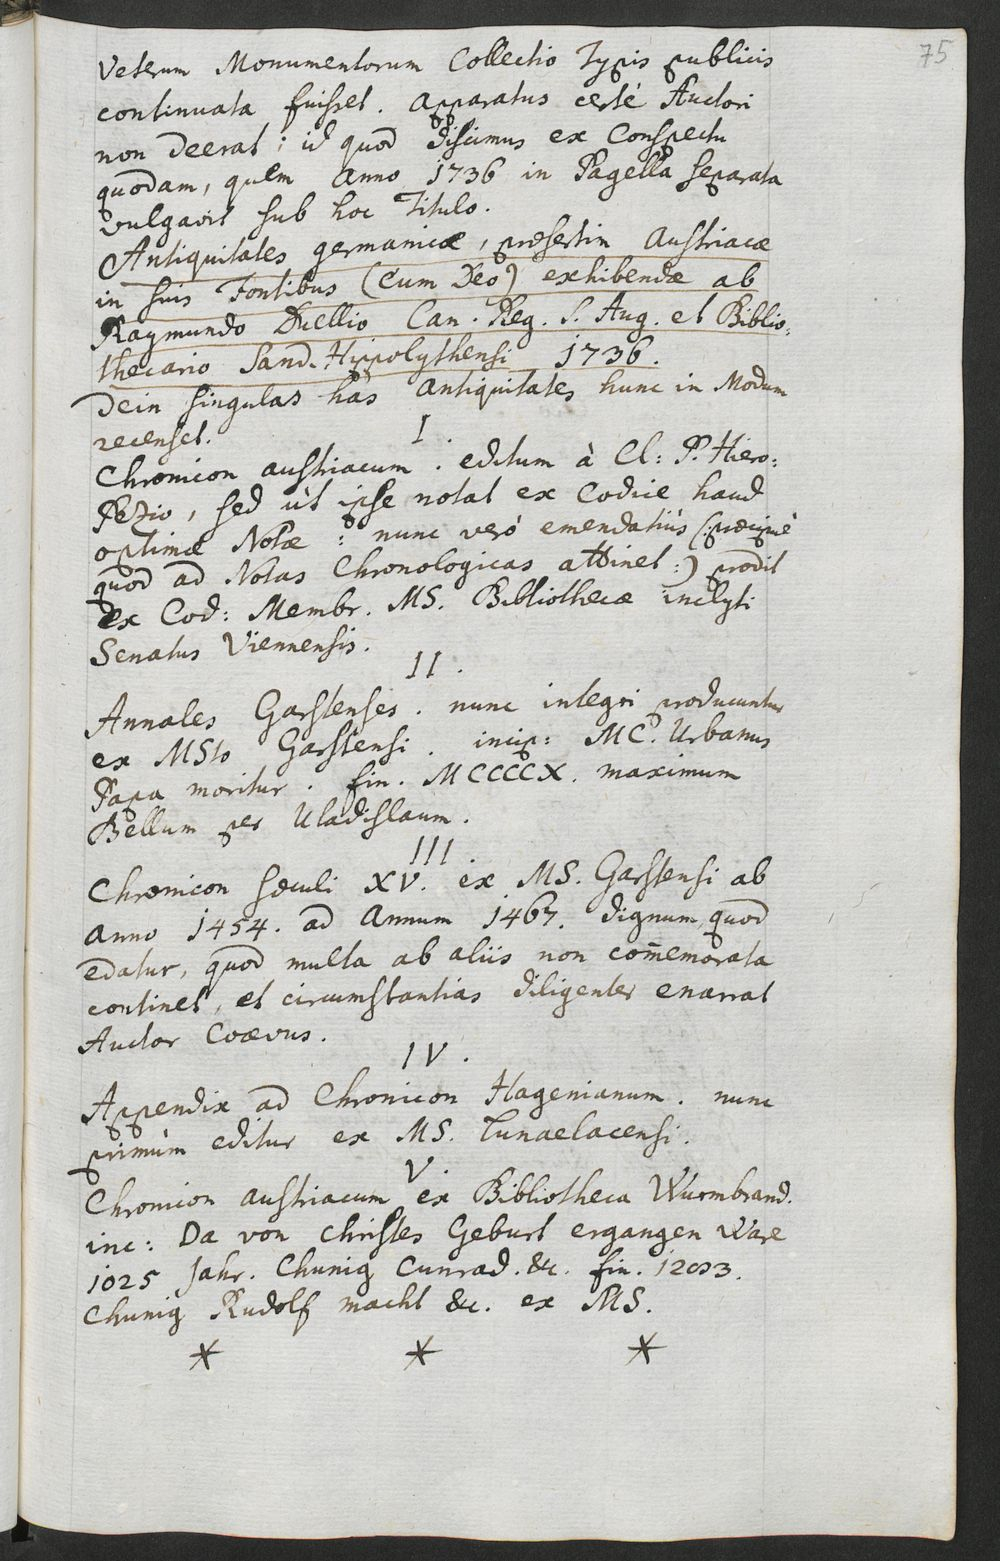 75
Veterum Monumentorum Collectio Typis publicis
continuata fuisset. Apparatus certè Auctori
non deerat; id quod discimus ex Conspectu
quodam, quem Anno 1736 in Pagella separata
vulgavit sub hoc Titulo.
Antiquitates germanicæ, præsertim Austriacæ
in suis Fontibus (Cum Deo) exhibendæ ab
Raymundo Duellio Can. Reg. S. Aug. et Biblio=
thecario Sand-Hippolythensi 1736.
Dein singulas has Antiquitates hunc in Modum
recenset.
I.
Chronicon austriacum. editum à Cl: P. Hiero:
Pezio, sed ùt ipse notat ex Codice haud
optimæ Notæ: nunc verò emendatiùs (:præcipuè
quod ad Notas Chronologicas attinet:) prodit
ex Cod: Membr. MS. Bibliothecæ inclyti
Senatus Viennensis.
II.
Annales Garstenses. nunc integri producuntur
ex MSto Garstensi. incip: MC. Urbanus
Papa moritur. fin. MCCCCX. maximum
Bellum per Uladislaum.
III
Chronicon sæculi XV. ex MS. Garstensi ab
anno 1454. ad Annum 1467. dignum quod
edatur, quod multa ab aliis non com̄emorata
continet, et circumstantias diligenter enarrat
Auctor Coævus.
IV.
Appendix ad Chronicon Hagenianum. nunc
primùm editur ex MS. Lunaelacensi.
V
Chronicon austriacum ex Bibliotheca Wurmbrand.
inc: Da von Christes Geburt ergangen Ware
1025 Jahr. Chunig Cunrad. &c. fin.
Chunig Rudolf macht &c. ex MS.
* * *